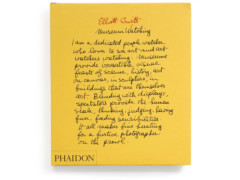 Elliott Erwitt
Museum Watching
I am a dedicated people watcher
who loves to see art and art
watchers watching. Museums
provide irresistible, visual
feasts of science, history, art
on canvas, in sculpture, in
buildings that are themselves
art. Blending with displays,
spectators provide the human
scale, thinking, judging, having
fun, finding sensibilities
it all makes fine hunting
for a furtive photographer
on the prowl.
PHAIDON